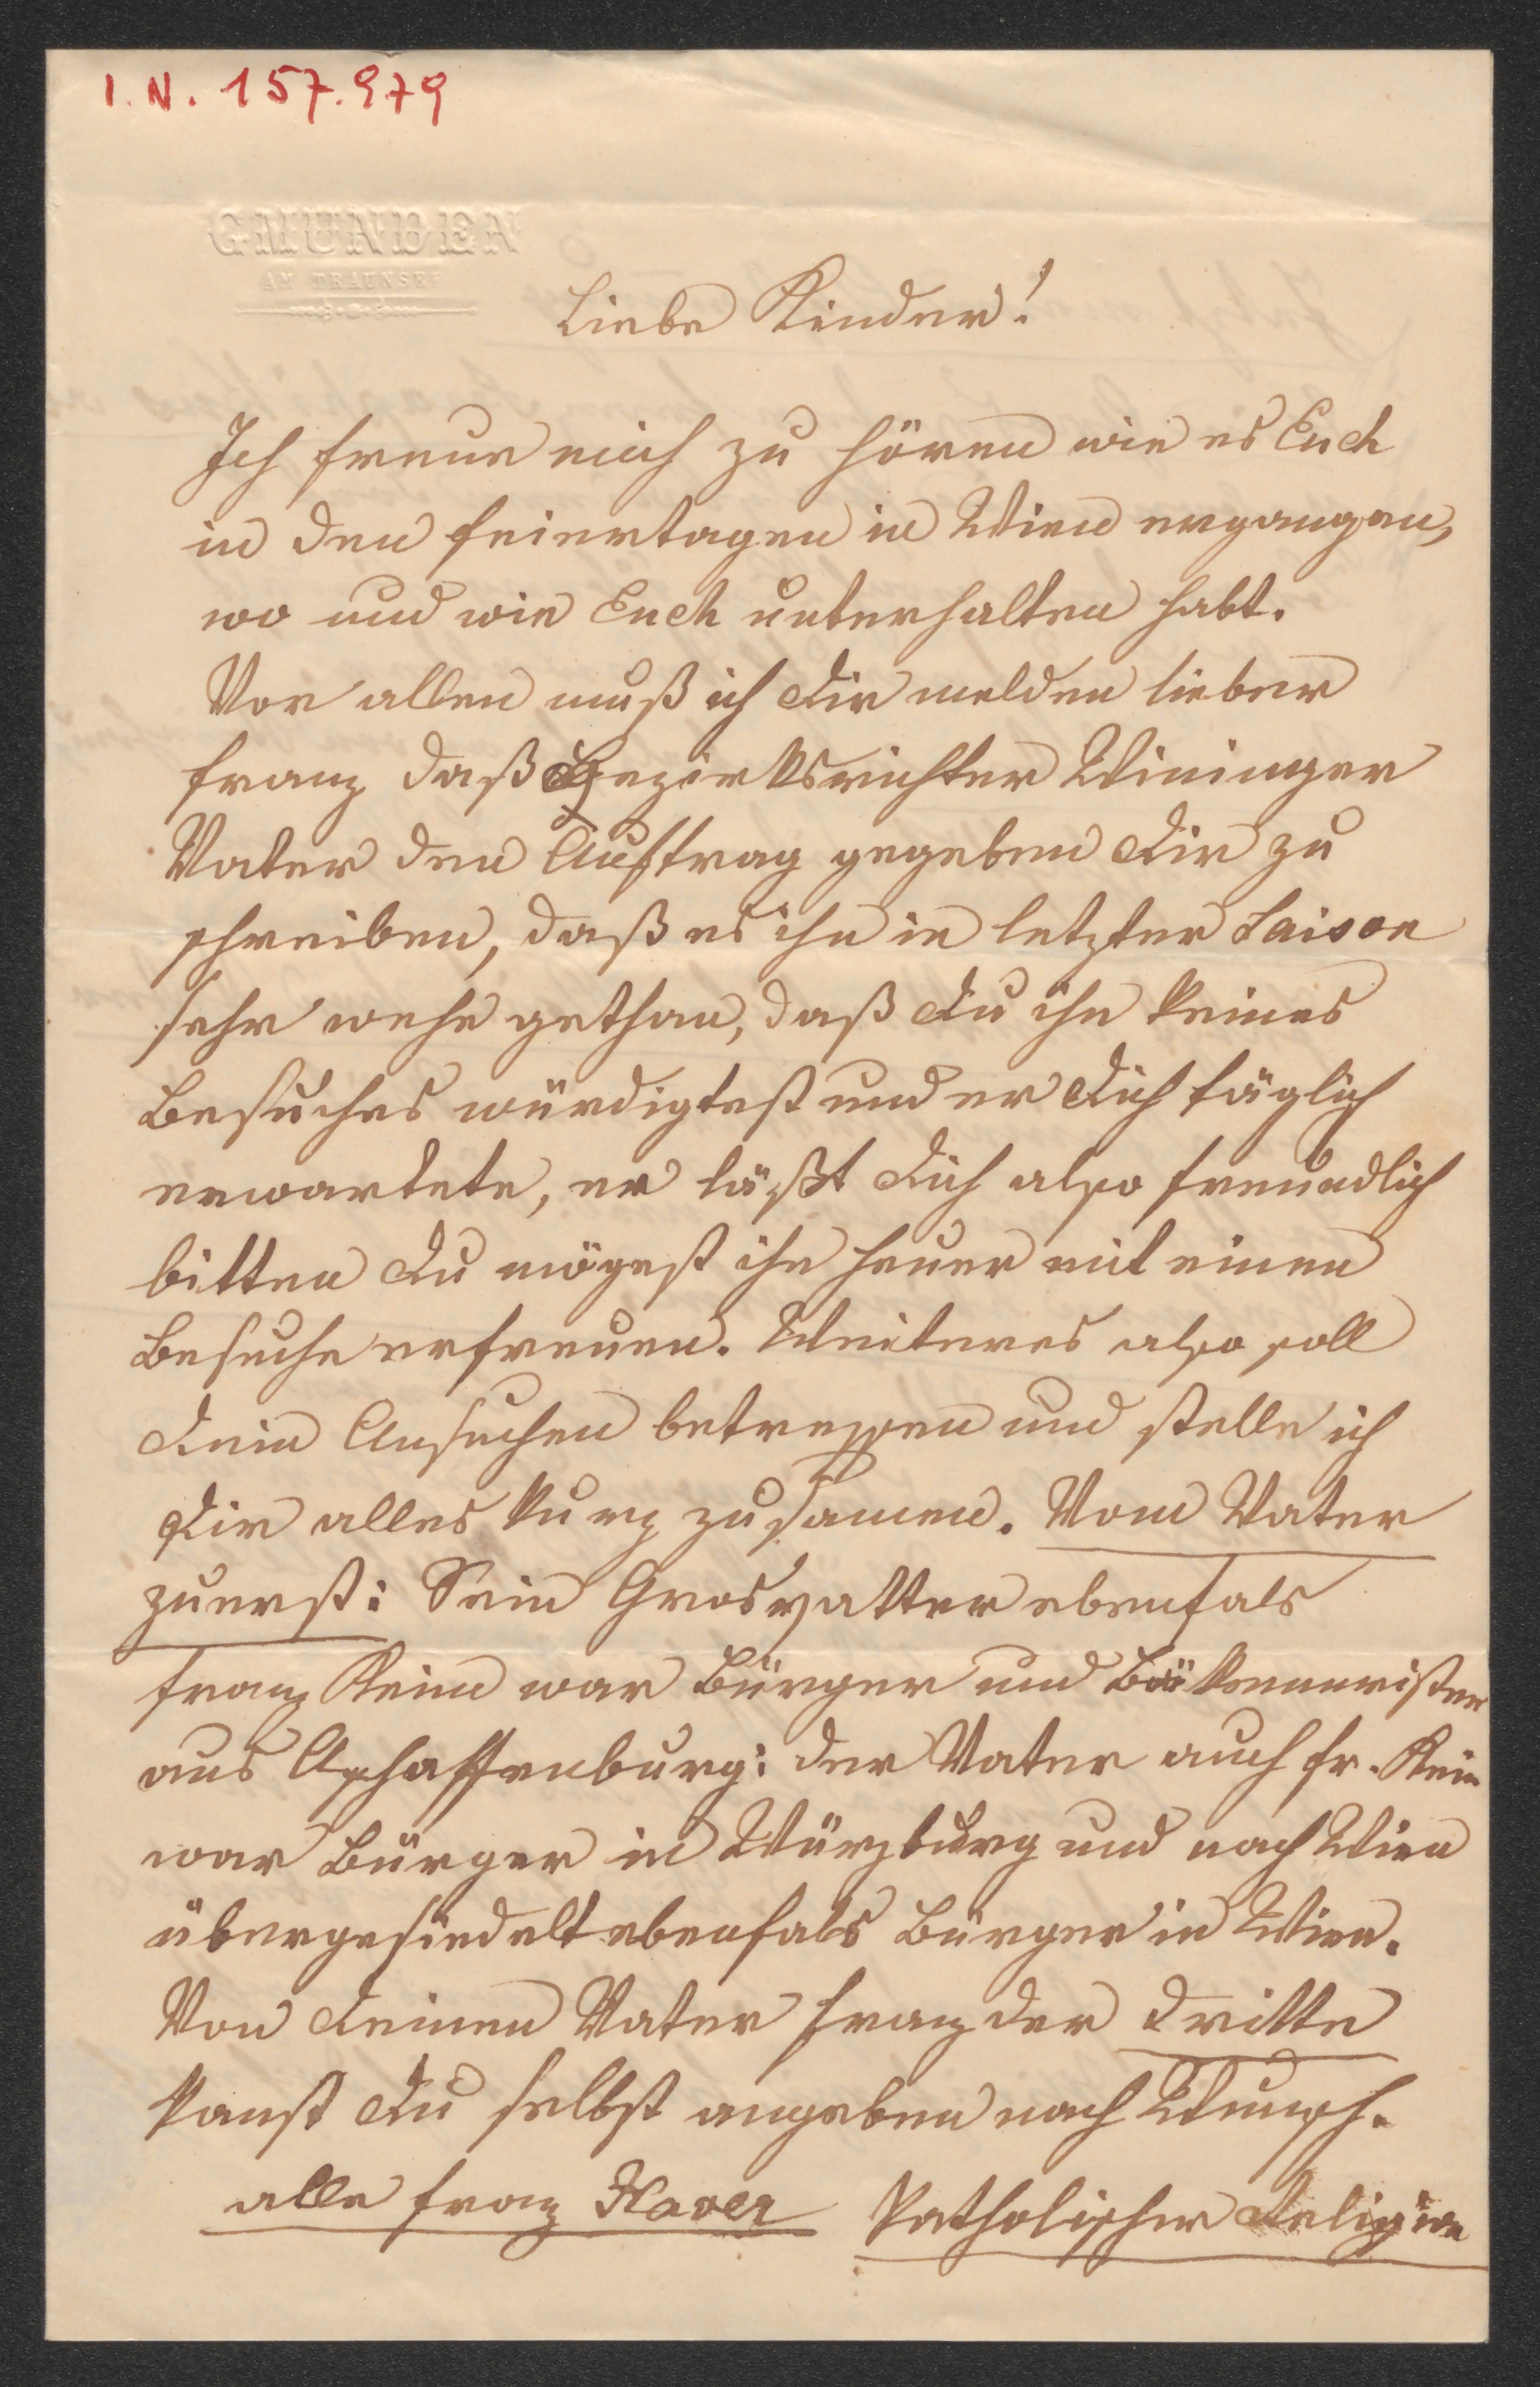 I. N. 157.979
GMUNDEN
AM TRAUNSEE
Liebe Kinder!
Ich freue mich zu hören wie es Euch
in den Feiertagen in Wien ergangen,
wo und wie Euch unterhalten habt.
Vor allen muß ich Dir melden lieber
Franz daß Bezirksrichter Wininger
Vater den Auftrag gegeben Dir zu
schreiben, daß es ihn in letzter Saison
sehr wehe gethan, daß Du ihn keines
Besuches würdigtest und er Dich täglich
erwartete, er läßt Dich also freundlich
bitten Du mögest ihn heuer mit einen
Besuche erfreuen. Weiteres also soll
Dein Ansuchen betreffen und stelle ich
Dir alles kurz zusamen. Vom Vater
zuerst: Sein Grosvatter ebenfals
Franz Keim war Bürger und Bäkermeister
aus Aschaffenburg: der Vater auch Fr. Keim
war Bürger in Würzburg und nach Wien
übergesiedelt ebenfals Bürger in Wien.
Von Deinen Vater Franz der dritte
kanst Du selbst angeben nach Wunsch.
alle Franz Xaver Katholischer Religion